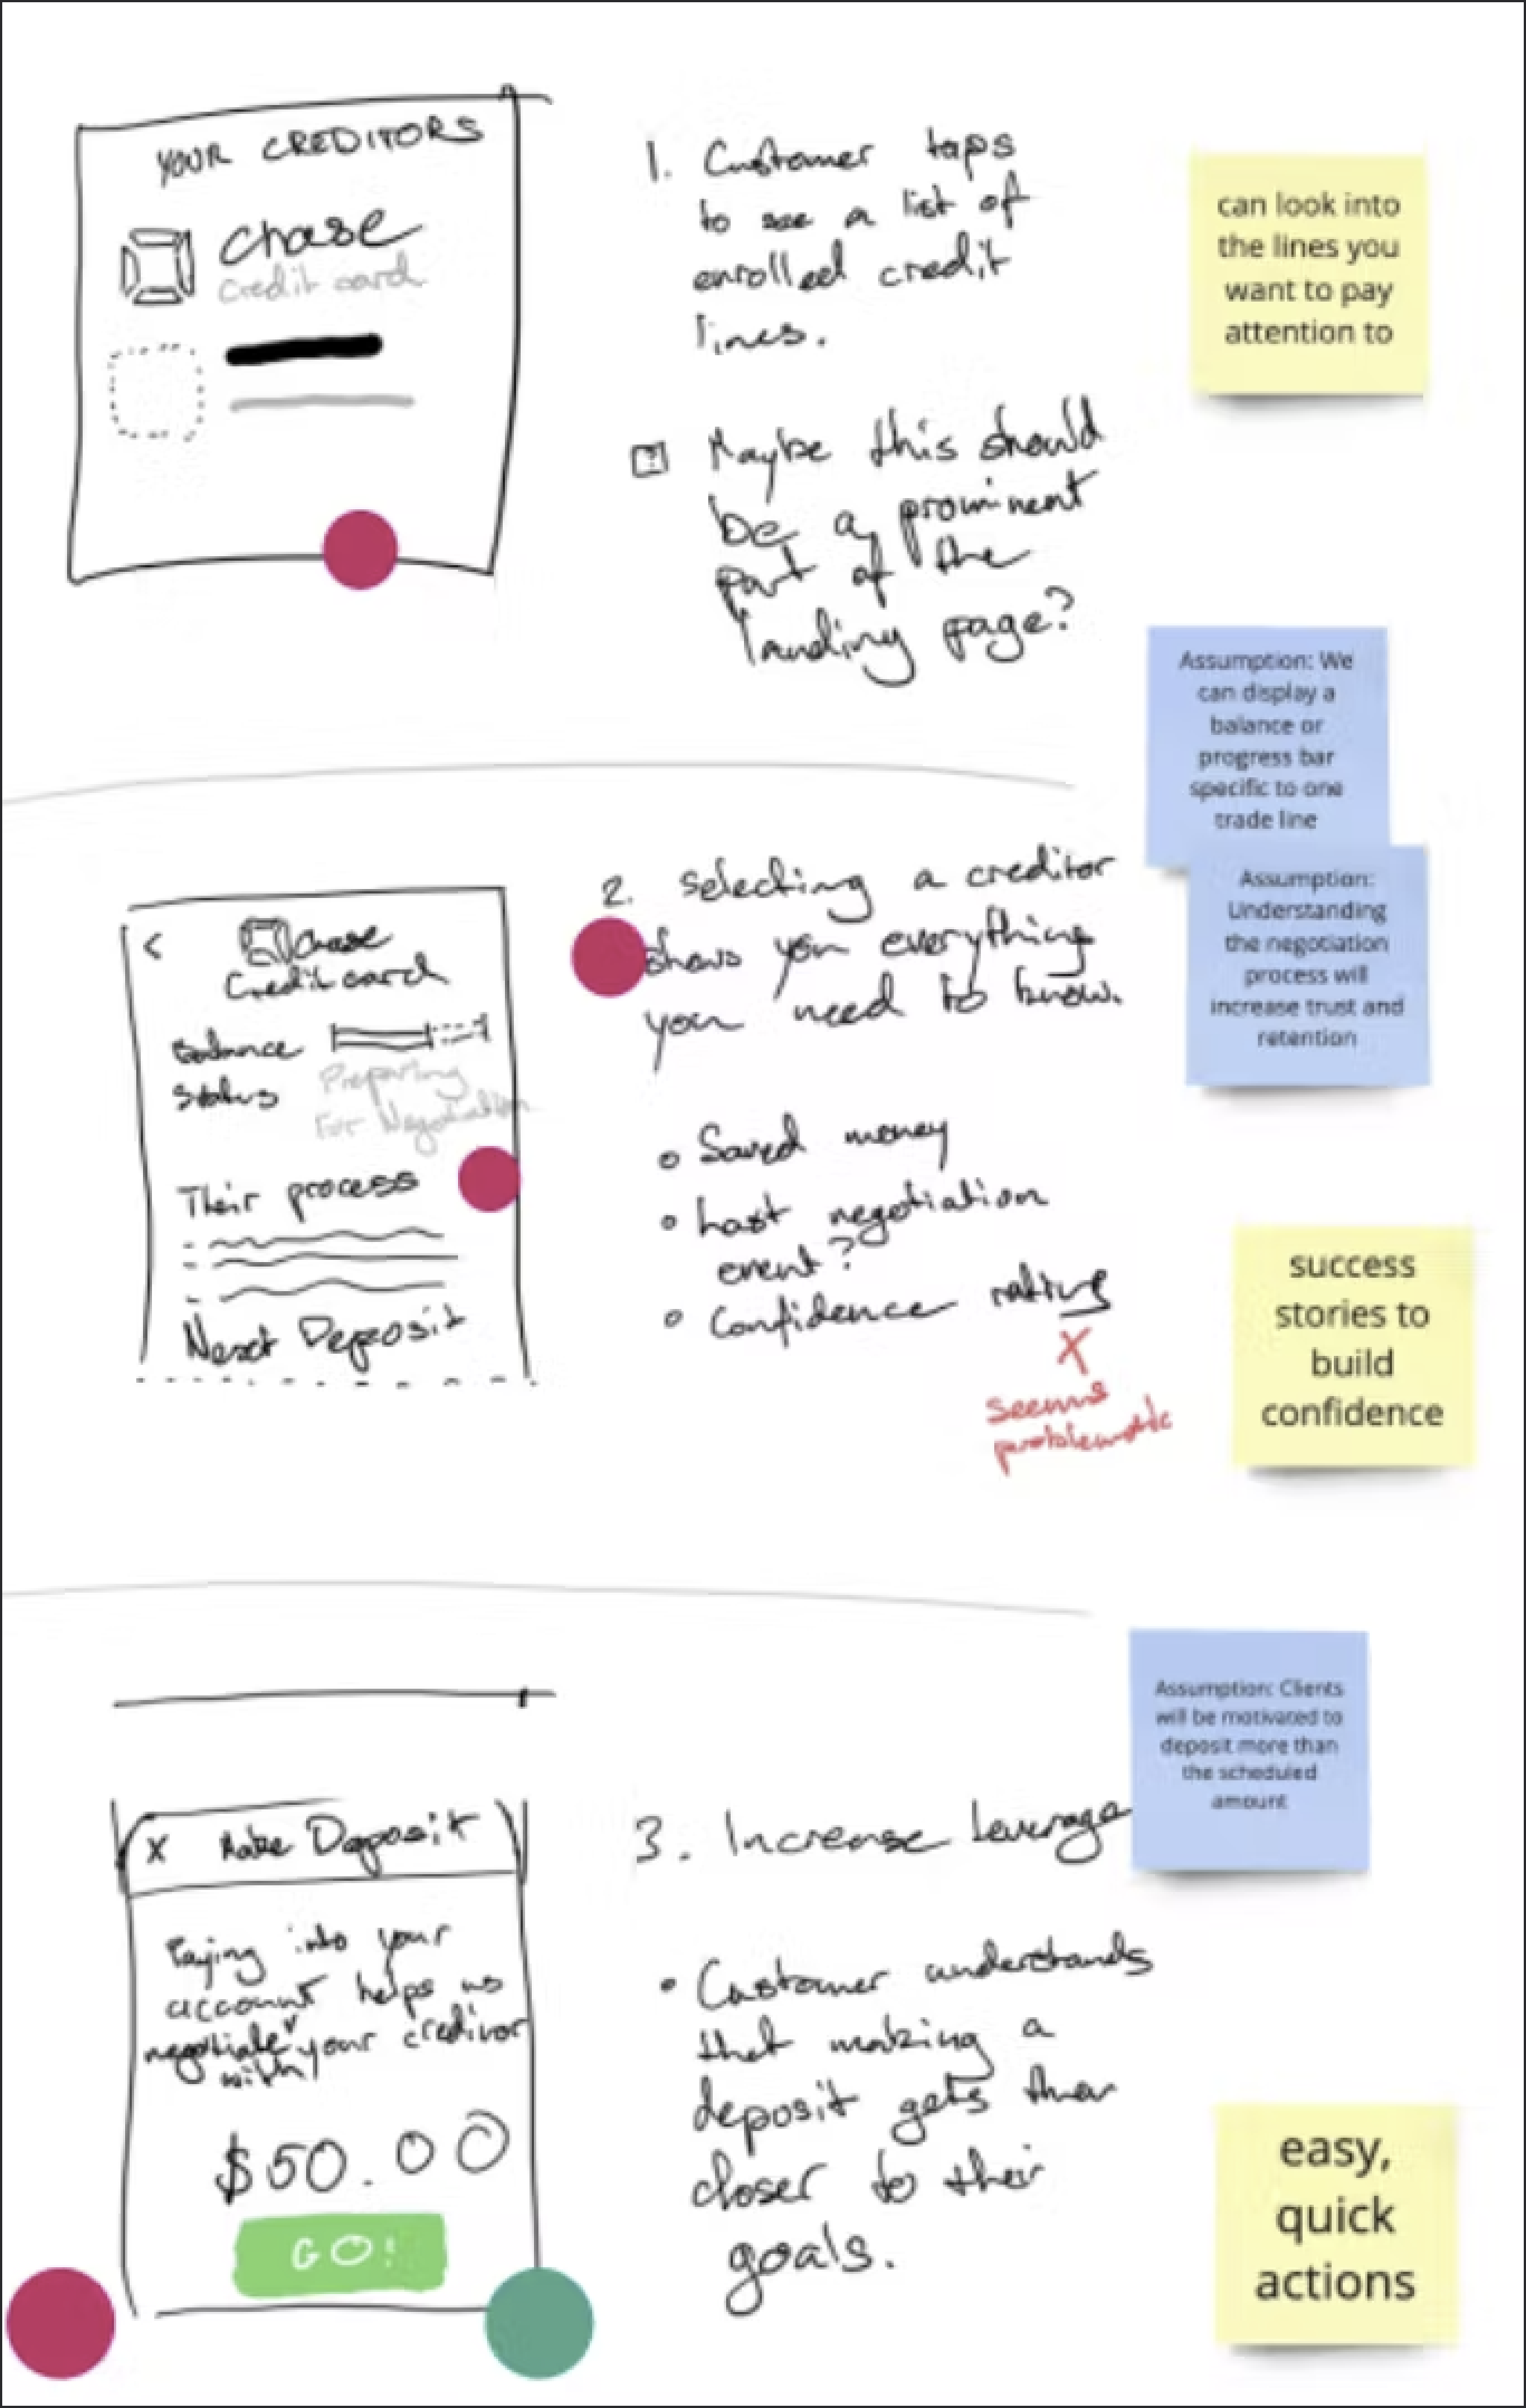 YOUR CREDITORS
Chase
credit card
1. Customer taps
to see a list of
enrolled credit
lines.
? Maybe this should
be a prominent
part of the
landing page?
can look into
the lines you
want to pay
attention to
Assumption: We
can display a
balance or
progress bar
specific to one
trade line
Assumption:
Understanding
the negotiation
process will
increase trust and
retention
< Chase
Credit card
Balance
Status
Preparing
For Negotiation
Their process
Next Deposit
2. Selecting a creditor
shows you everything
you need to know.
Saved money
Last negotiation
event?
Confidence rating
X
seems
problematic
success
stories to
build
confidence
Assumption: Clients
will be motivated to
deposit more than
the scheduled
amount
X Make Deposit
Paying into your
account helps us
negotiate with your creditor
$50.00
GO!
3. Increase Leverage
• Customer understands
that making a
deposit gets them
closer to their
goals.
easy,
quick
actions